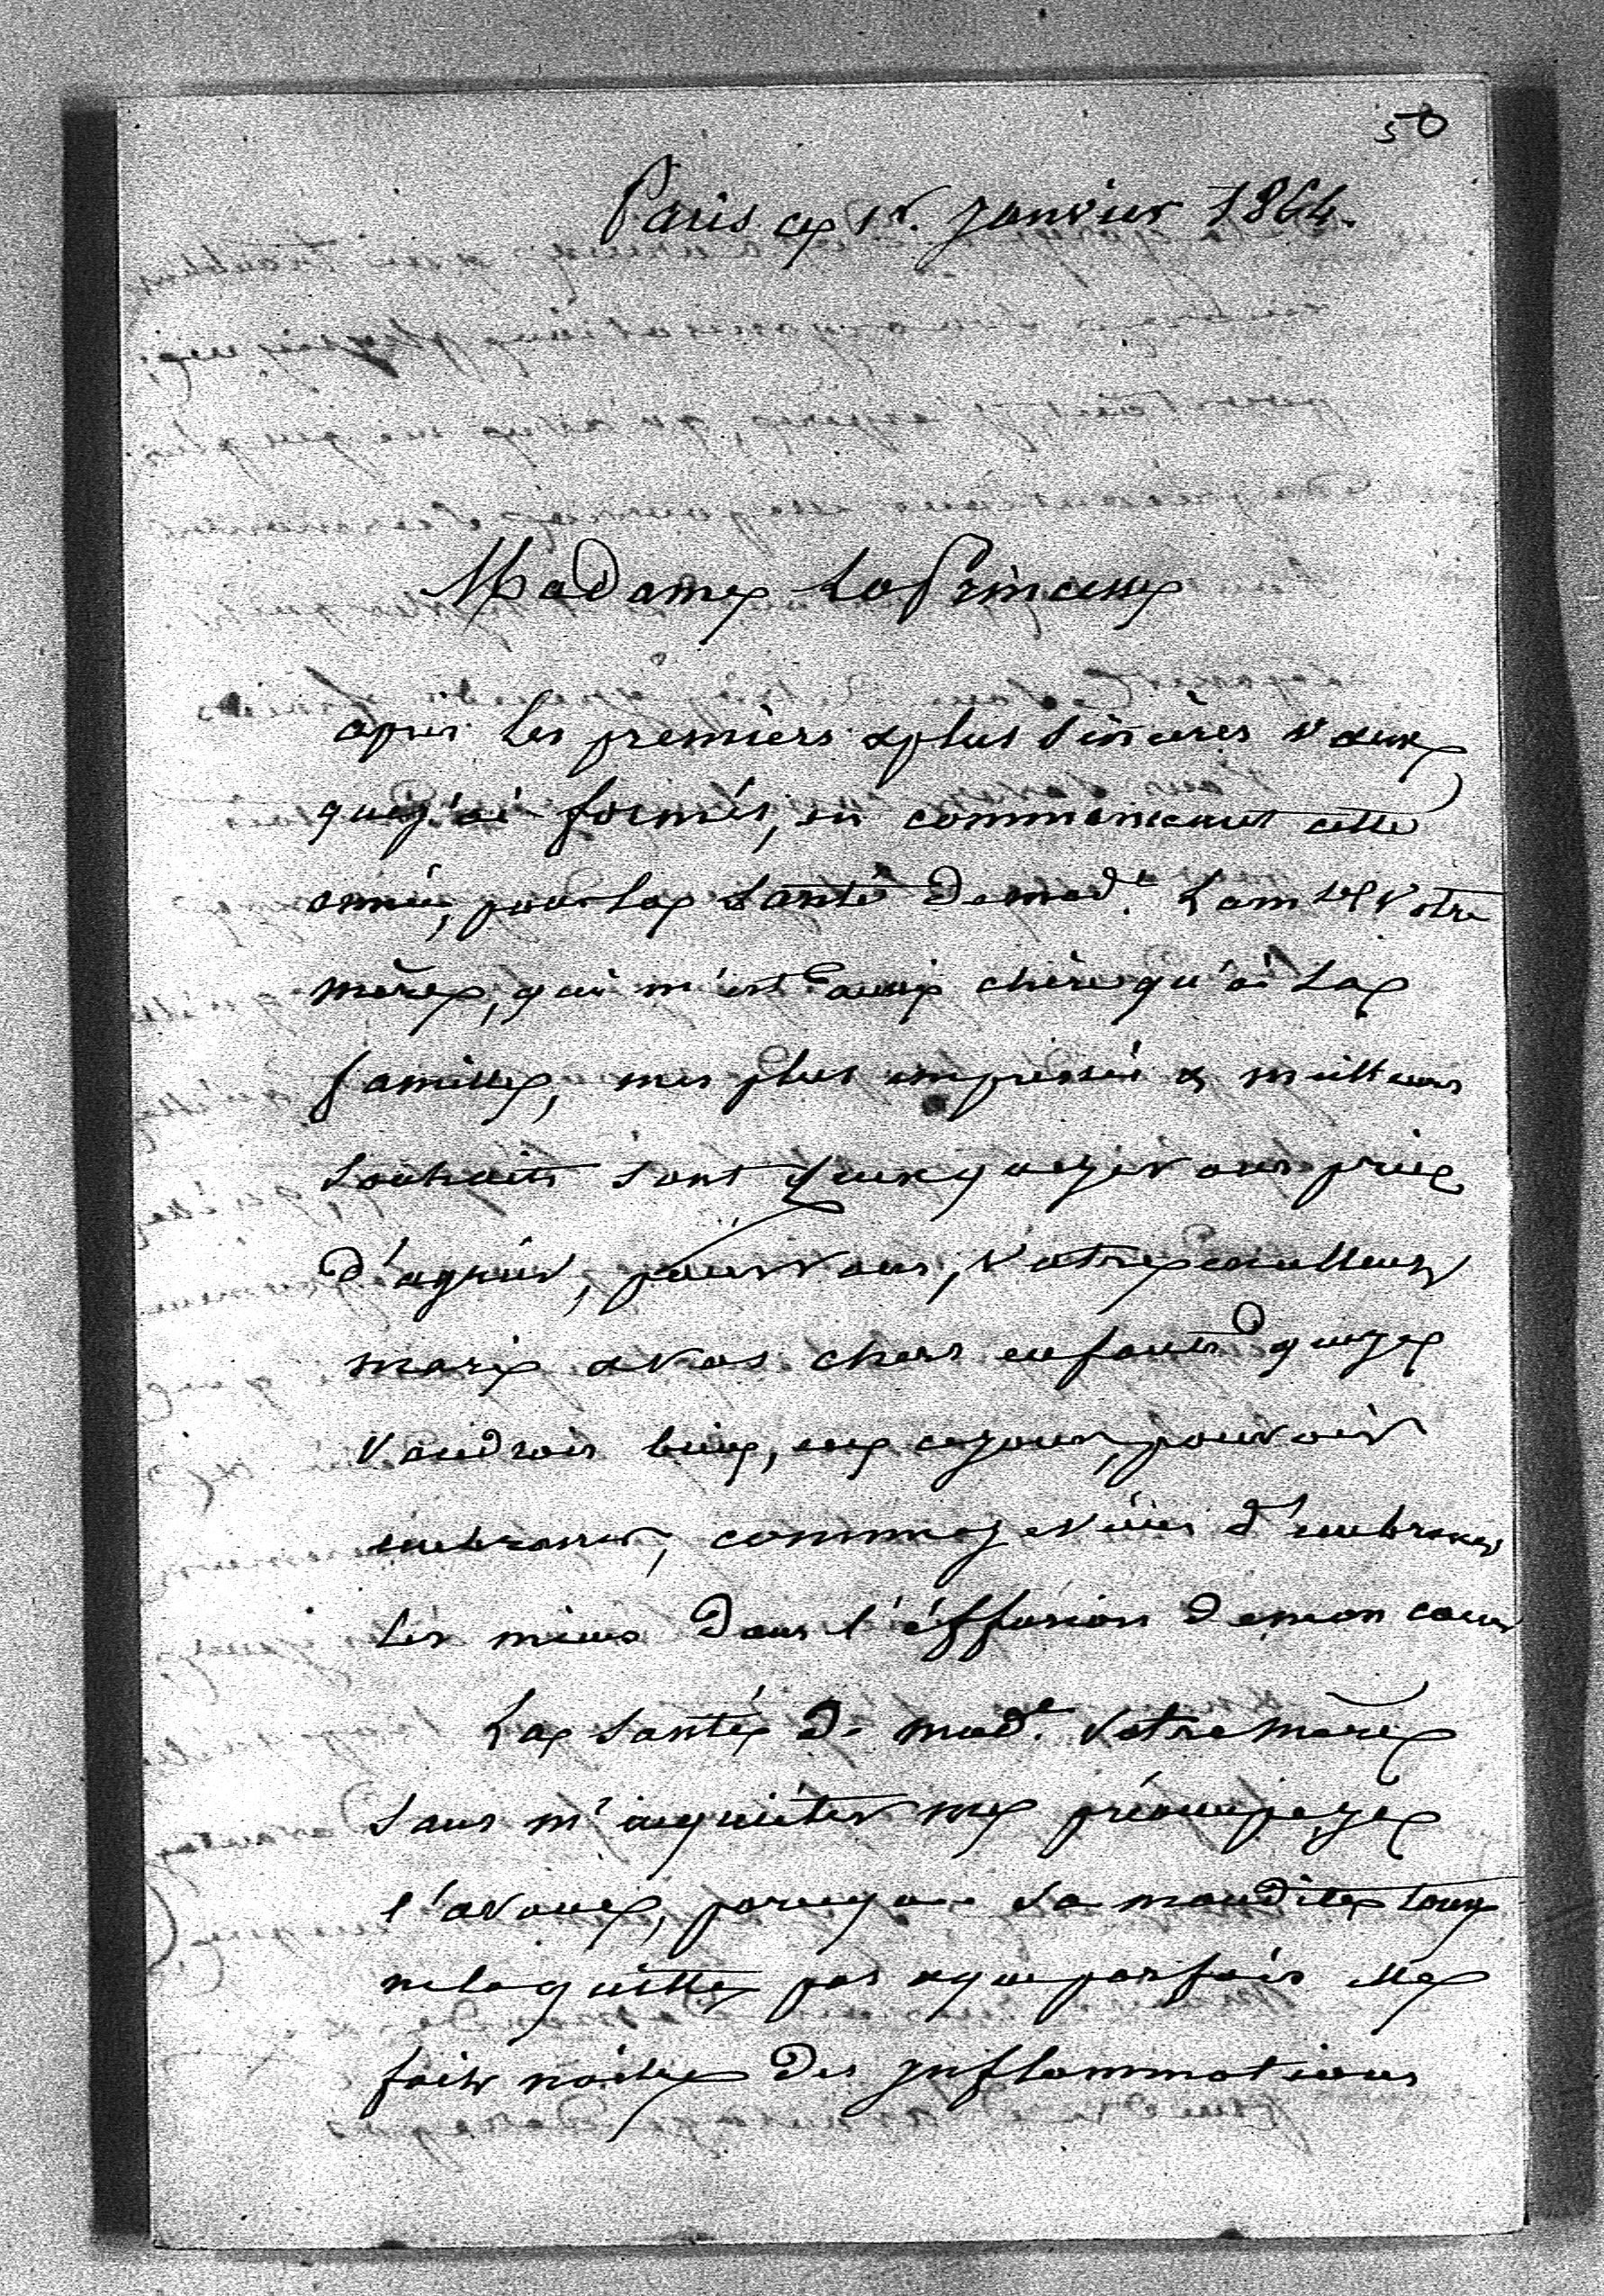 50
Paris ce 1r. Janvier 1864.
Madame La Princesse
après les premiers & plus sincères vœux
que j'ai formés, en commençant cette
année, pour la santé de madᵉ. votre
mère, qui m'est aussi chère qu'à sa
famille, mes plus empressés & meilleurs
souhaits sont ceux que je vous prie
d'agréer, pour vous, votre excellent
mari & vos chers enfants que je
voudrois bien, en ce jour, pouvoir
embrasser, comme je viens d'embrasser
les miens dans l'éffusion de mon cœur
La santé de madᵉ. votre mère
sans m'inquiéter me préoccupe, je
l'avoue, parceque sa maudite toux
ne la quitte pas & que parfois elle
fait naître des inflammations